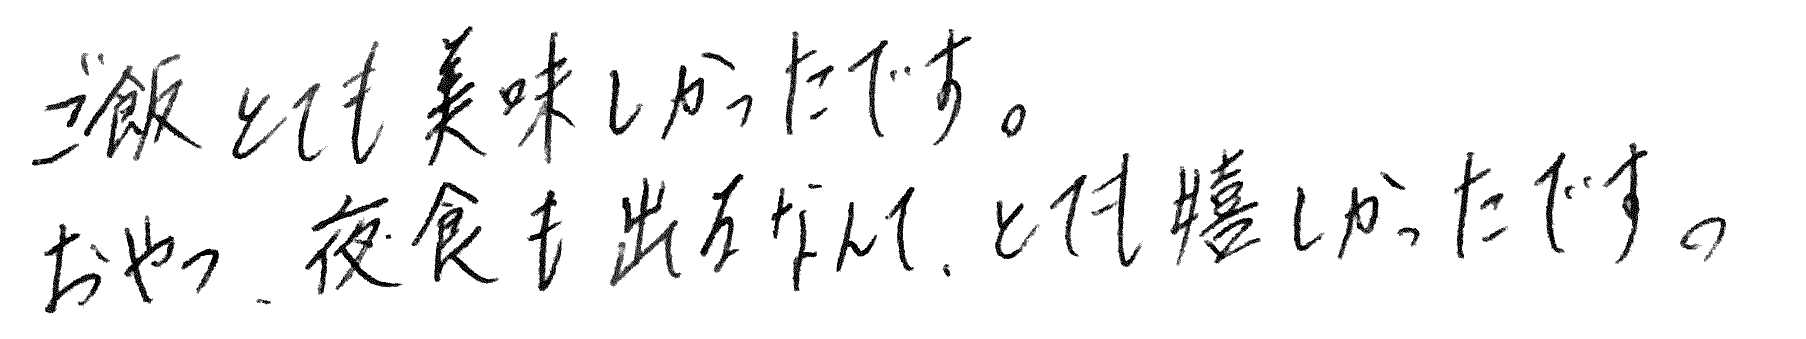 ご飯とても美味しかったです。
おやつ、夜食も出るなんて、とても嬉しかったです。